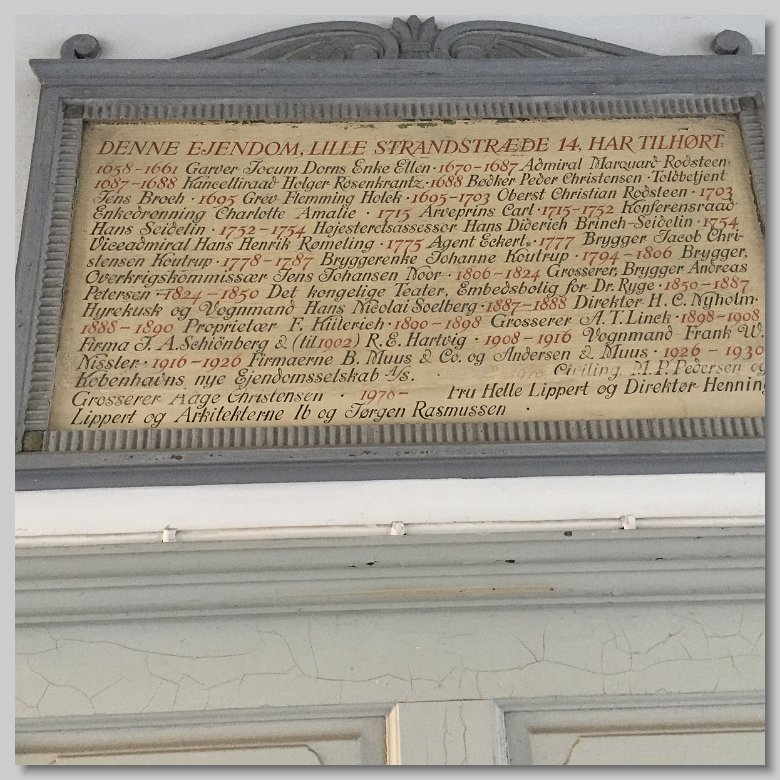 DENNE EJENDOM, LILLE STRANDSTRÆDE 14, HAR TILHØRT:
1658-1661 Garver Jocum Dorns Enke Ellen · 1670-1687 Admiral Marquard Rodsteen·
1687-1688 Kancelliraad Holger Rosenkrantz · 1688 Bødker Peder Christensen · Toldbetjent
Jens Broch · 1695 Grev Flemming Holck · 1695-1703 Oberst Christian Rodsteen · 1703
Enkedronning Charlotte Amalie · 1715 Arveprins Carl · 1715-1752 Konferensraad
Hans Seidelin · 1752-1754 Højesteretsassessor Hans Diderich Brinch-Seidelin · 1754
Viceadmiral Hans Henrik Rømeling · 1775 Agent Eckert · 1777 Brygger Jacob Chri-
stensen Koutrup · 1778-1787 Bryggerenke Johanne Koutrup · 1794-1806 Brygger,
Overkrigskommissær Jens Johansen Noor · 1806-1824 Grosserer, Brygger Andreas
Petersen · 1824-1850 Det kongelige Teater, Embedsbolig for Dr. Ryge · 1850-1887
Hyrekusk og Vognmand Hans Nicolai Soelberg · 1887-1888 Direktør H. C. Nyholm·
1888-1890 Proprietær F. Hülerich · 1890-1898 Grosserer A. T. Linck · 1898-1908
Firma J. A. Schiönberg & (til 1902) R. E. Hartvig · 1908-1916 Vognmand Frank W.
Nissler · 1916-1926 Firmaerne B. Muus & Co. og Andersen & Muus · 1926-1930
Københavns nye Ejendomsselskab A/s. 1976 Civiling. M. P. Pedersen og
Grosserer Aage Christensen · 1976- Fru Helle Lippert og Direktør Henning
Lippert og Arkitekterne Ib og Jørgen Rasmussen ·